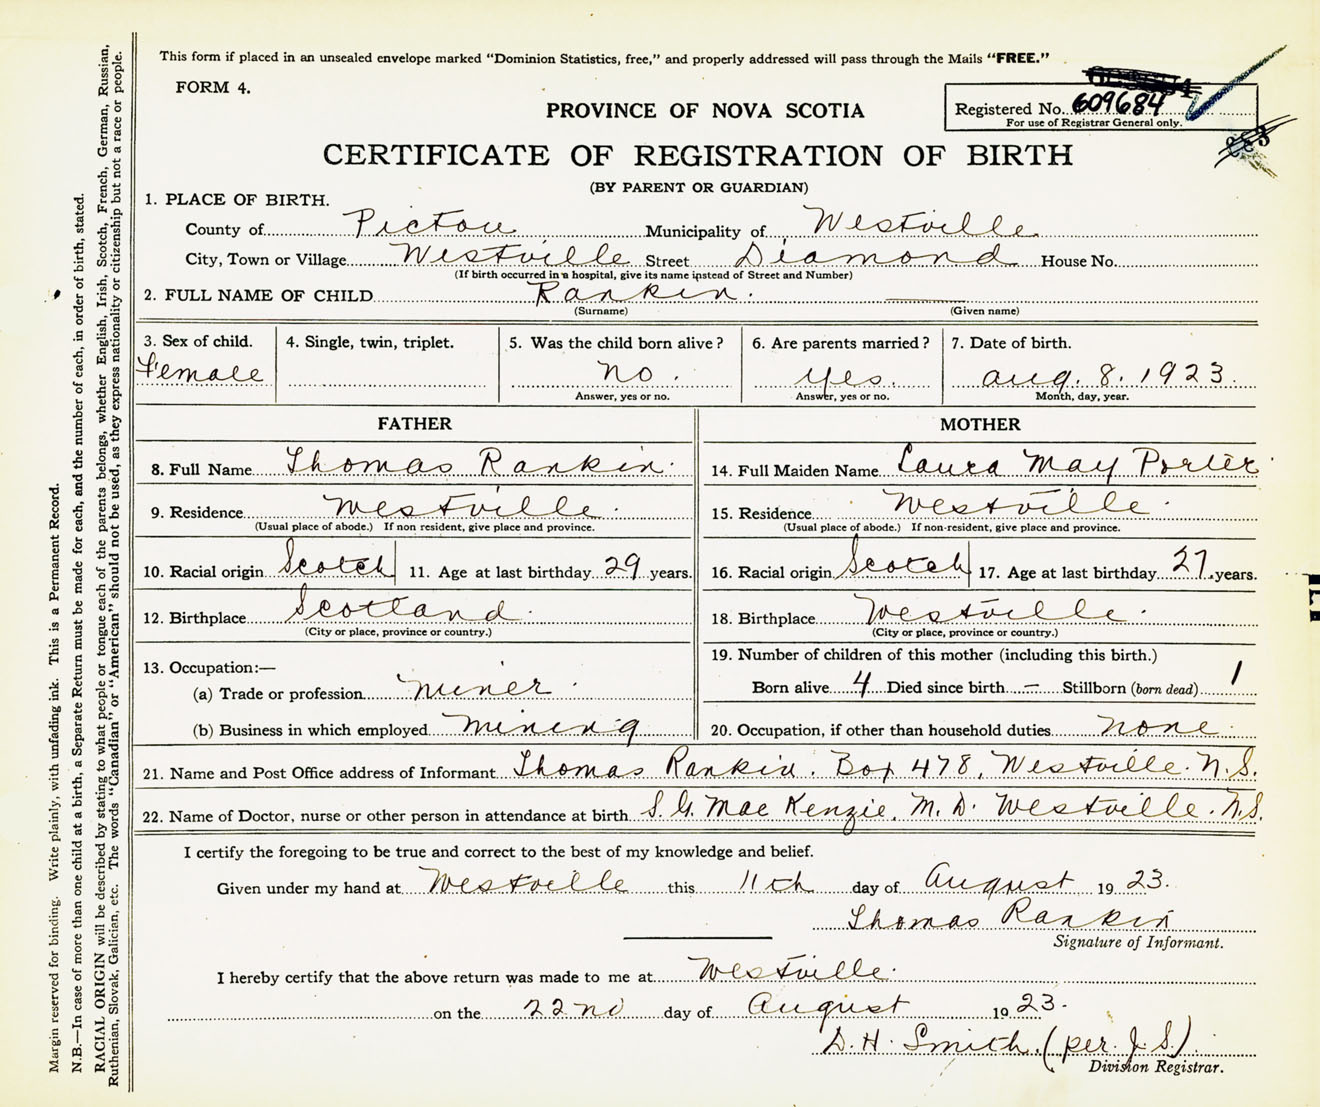 This form if placed in an unsealed envelope marked "Dominion Statistics, free," and properly addressed will pass through the Mails "FREE."
FORM 4.
PROVINCE OF NOVA SCOTIA
Registered No. 609684
For use of Registrar General only.
CERTIFICATE OF REGISTRATION OF BIRTH
(BY PARENT OR GUARDIAN)
1. PLACE OF BIRTH.
County of Pictou Municipality of Westville
City, Town or Village Westville Street Diamond House No.
(If birth occurred in a hospital, give its name instead of Street and Number)
2. FULL NAME OF CHILD Rankin.
(Surname) (Given name)
3. Sex of child. 4. Single, twin, triplet. 5. Was the child born alive? 6. Are parents married? 7. Date of birth.
Female no. yes. aug. 8. 1923.
Answer, yes or no. Answer, yes or no. Month, day, year.
FATHER MOTHER
8. Full Name Thomas Rankin. 14. Full Maiden Name Laura May Porter
9. Residence Westville. 15. Residence Westville.
(Usual place of abode.) If non resident, give place and province. (Usual place of abode.) If non-resident, give place and province.
10. Racial origin Scotch 11. Age at last birthday 29 years. 16. Racial origin Scotch 17. Age at last birthday 27 years.
12. Birthplace Scotland. 18. Birthplace Westville.
(City or place, province or country.) (City or place, province or country.)
13. Occupation:— 19. Number of children of this mother (including this birth.)
(a) Trade or profession miner. Born alive 4 Died since birth — Stillborn (born dead) 1
(b) Business in which employed mining 20. Occupation, if other than household duties none.
21. Name and Post Office address of Informant Thomas Rankin. Box 478, Westville. N.S.
22. Name of Doctor, nurse or other person in attendance at birth S. G. MacKenzie. M. D. Westville. N.S.
I certify the foregoing to be true and correct to the best of my knowledge and belief.
Given under my hand at Westville this 11th day of August 1923.
Thomas Rankin
Signature of Informant.
I hereby certify that the above return was made to me at Westville.
on the 22nd day of August 1923.
D. H. Smith. (per. J. S.)
Division Registrar.
Margin reserved for binding. Write plainly, with unfading ink. This is a Permanent Record.
N.B.—In case of more than one child at a birth, a Separate Return must be made for each, and the number of each, in order of birth, stated.
RACIAL ORIGIN will be described by stating to what people or tongue each of the parents belongs, whether English, Irish, Scotch, French, German, Russian,
Ruthenian, Slovak, Galician, etc. The words "Canadian" or "American" should not be used, as they express nationality or citizenship but not a race or people.